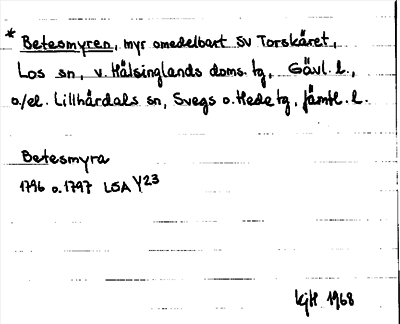 * Betesmyren, myr omedelbart SV Torskäret,
Los sn, v. Hälsinglands doms. tg, Gävl. l.,
o/el. Lillhärdals sn, Svegs o. Hede tg, Jämtl. l.
Betesmyra
1796 o. 1797 LSA Y23
KjH 1968